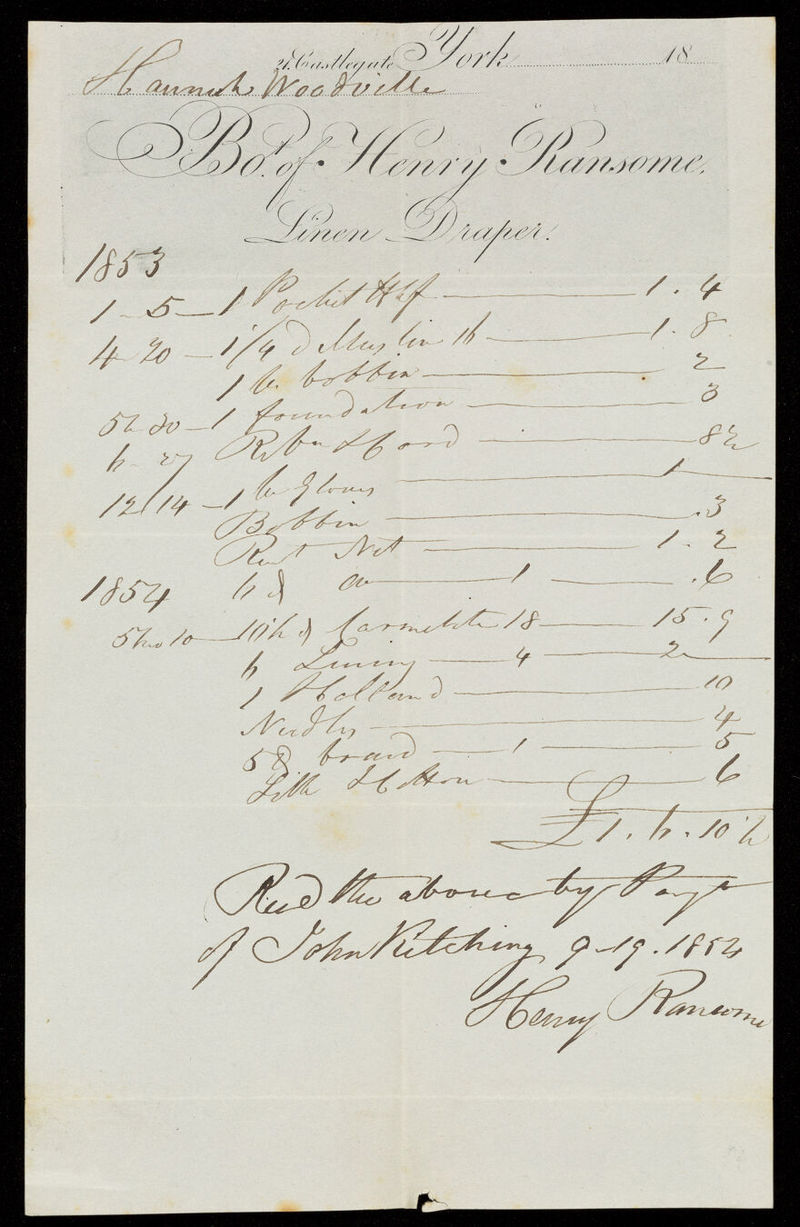 21, Castlegate, York 18
Hannah Woodville
Bot. of Henry Ransome,
Linen Draper.
1853
1 - 5 - 1 Pocket Hkf 1 . 4
4 20 - 1 1/4 d Muslin 16 1 . 8
1 bobbin 2
5 30 - 1 foundation 3
6 - 27 Ribn & Cord 8½
12 14 - 1 Gloves 1
Bobbin . 3
Net 1 . 2
1854 6 d 1 . 6
5 10 10½ d 18 15 . 9
6 Lining 4 2
1 Holland 10
Needles 4
5 d braid 1 5
Silk & Cotton 6
£1 . 6 . 10½
Recd the above by Paymt
of John Kitching 9 - 19 . 1854
Henry Ransome